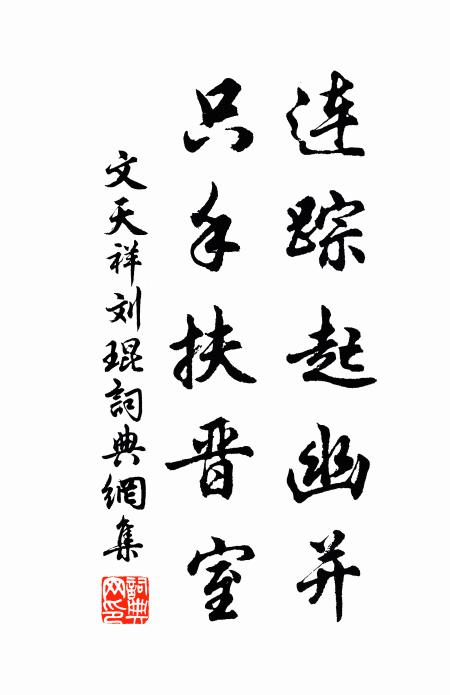 连踪起幽并
只手扶晋室
文天祥刘琨詞典網集
詞典網印